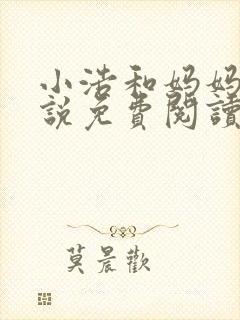 小浩和妈妈
說免費閱讀
莫晨歡